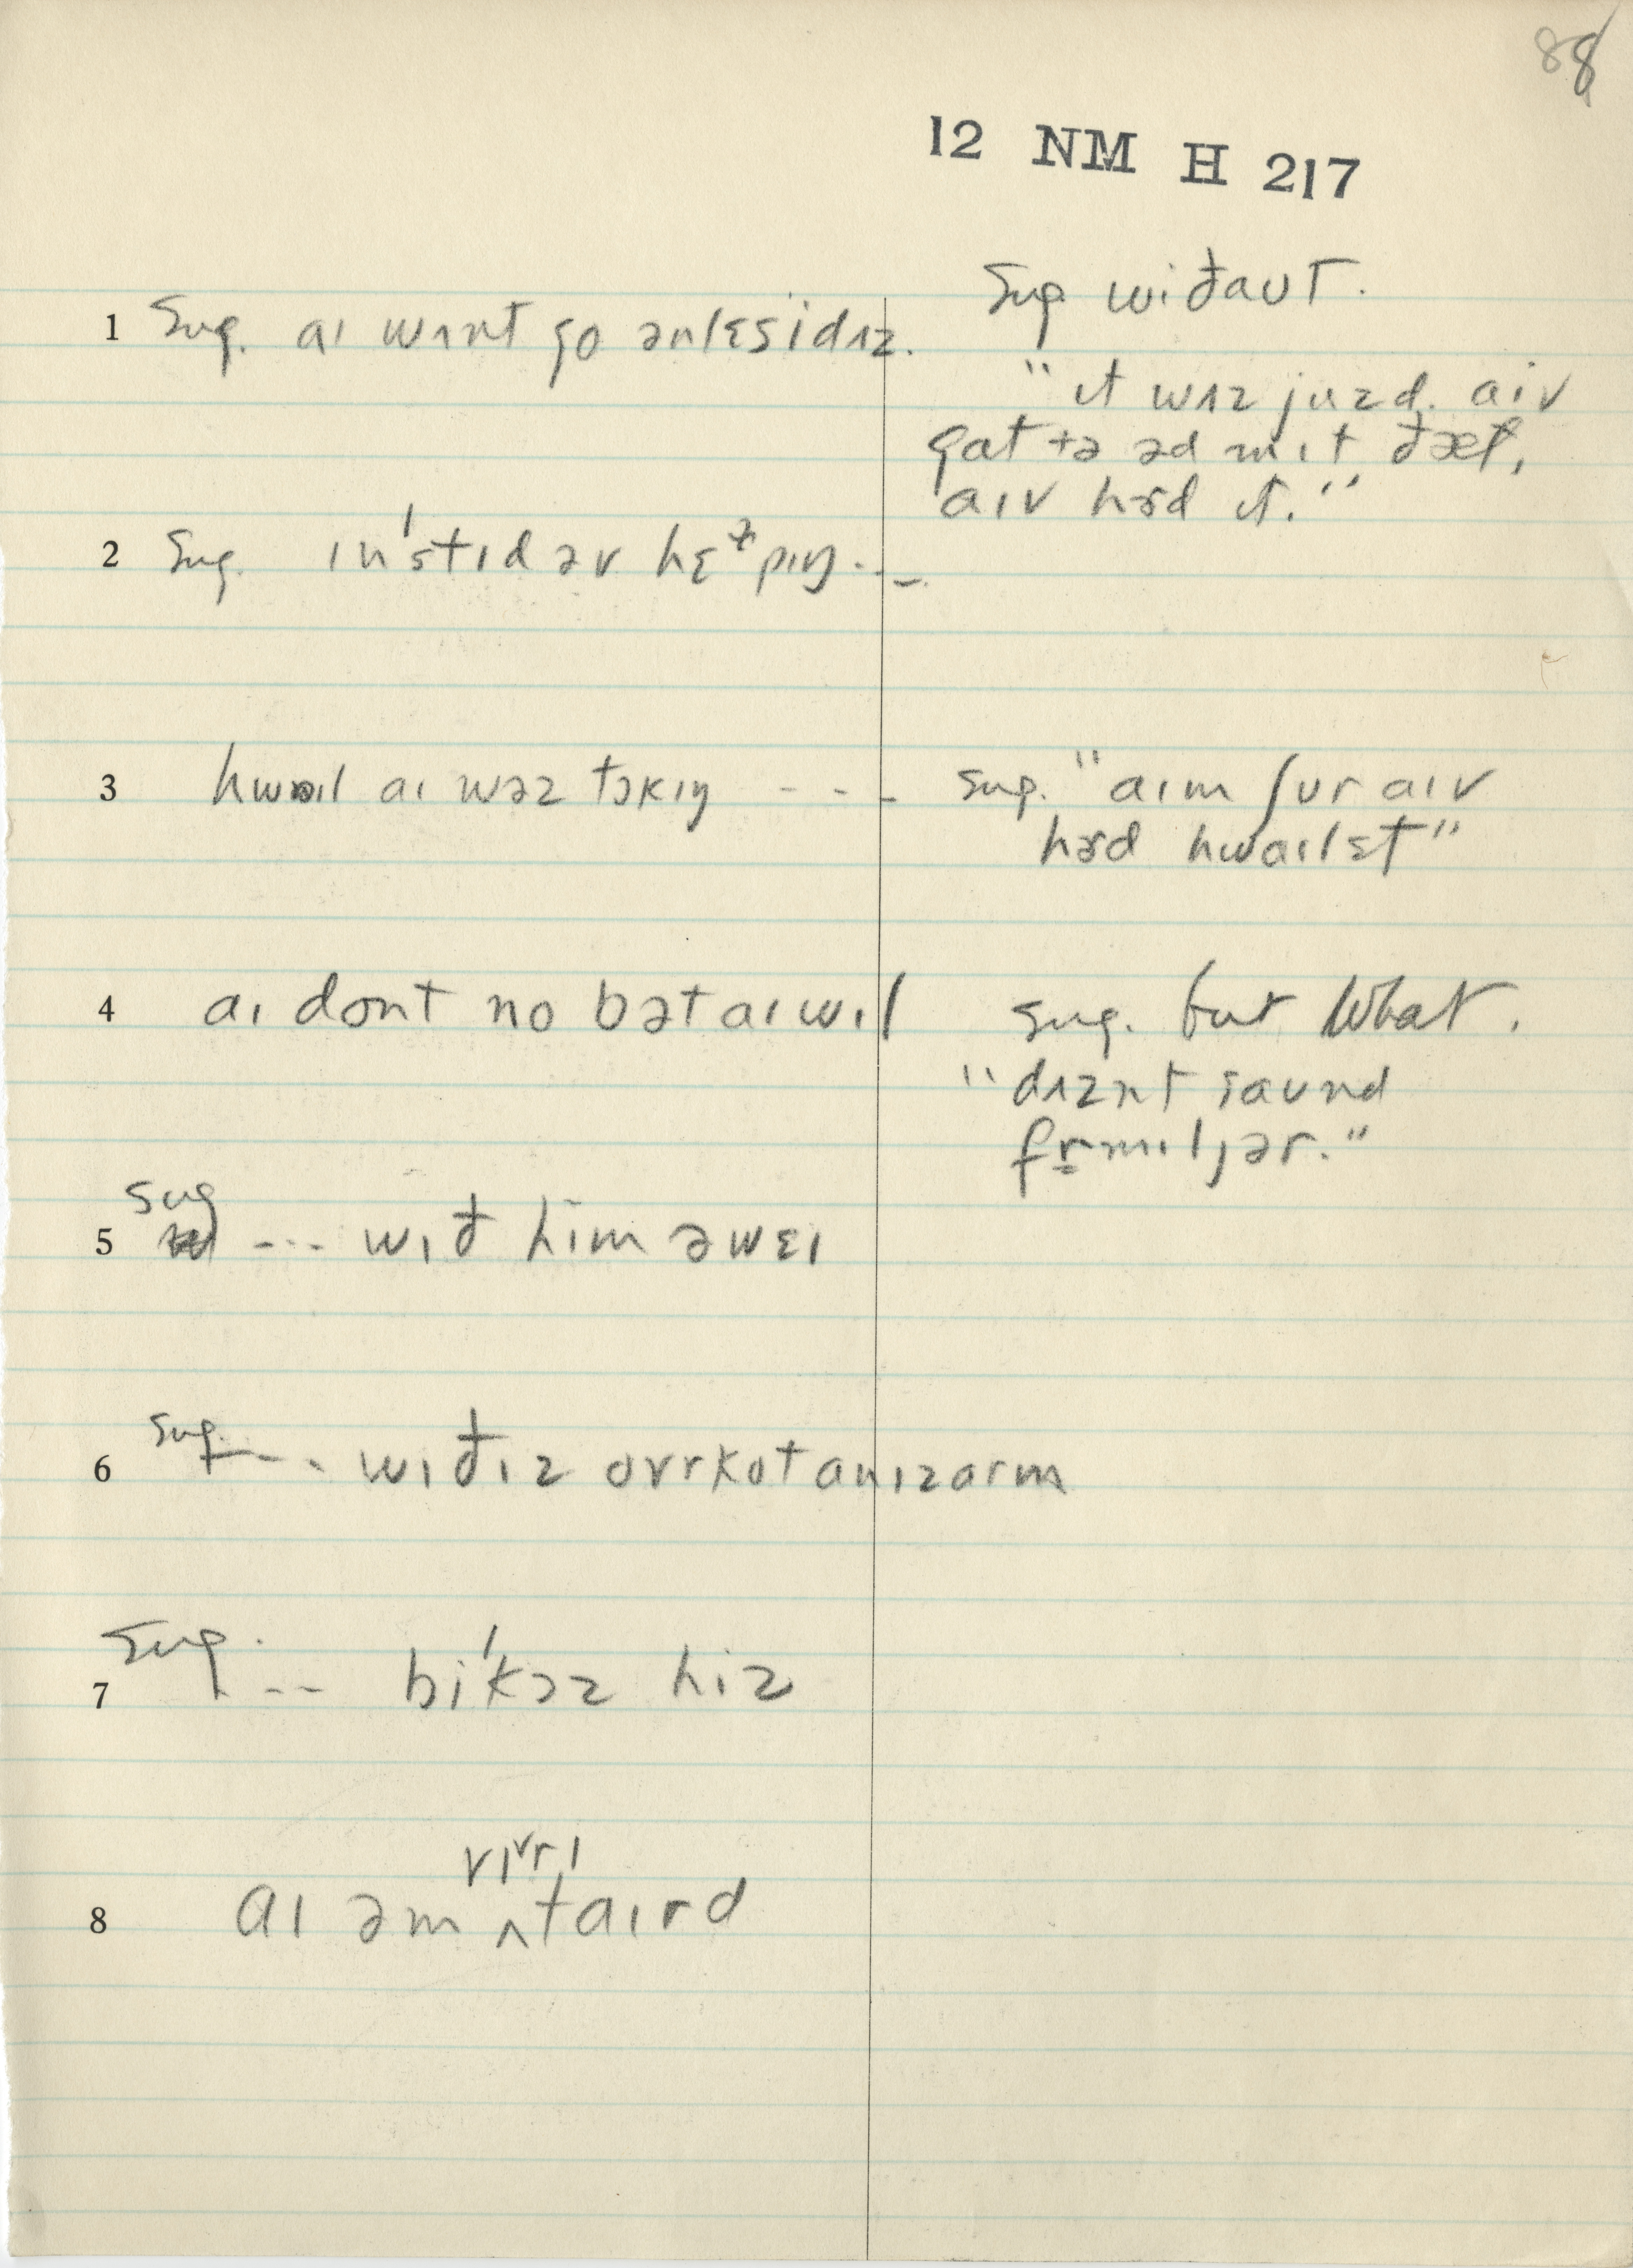 88
12 NM H 217
1 Sug. aɪ wʌnt go ənlɛs i dʌz.
Sug wiðaʊt.
"ɪt wʌz juzd. aiv
gat tə ədmɪt ðæt,
aɪv hɝd ɪt."
2 Sug. ɪn'stɪd əv hɛɫpɪŋ...
3 hwaɪl aɪ wəz tɔkɪŋ - - -
sug. "aɪm ʃʊr aɪv
hɝd hwaɪlɛt"
4 aɪ dont no bət aɪ wɪl
sug. but what.
"dʌznt saʊnd
fr̩mɪljər."
5 sug --- wɪð him əwɛɪ
6 sug. --- wɪð ɪz ovrkot an ɪz arm
7 Sug. -- bi'kɔz hiz
vɪˇrɪ
8 aɪ əm ^ taɪrd